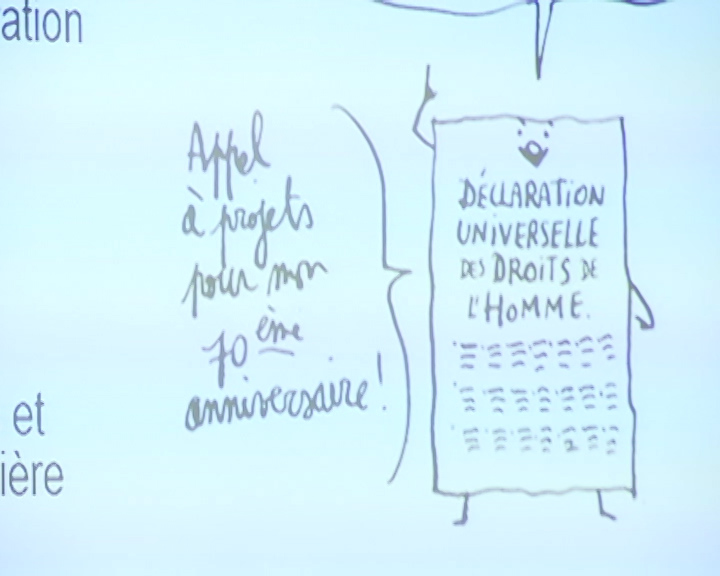 ation
Appel
à projets
pour mon
70 ème
anniversaire !
DÉCLARATION
UNIVERSELLE
DES DROITS DE
L'HOMME.
et
ière